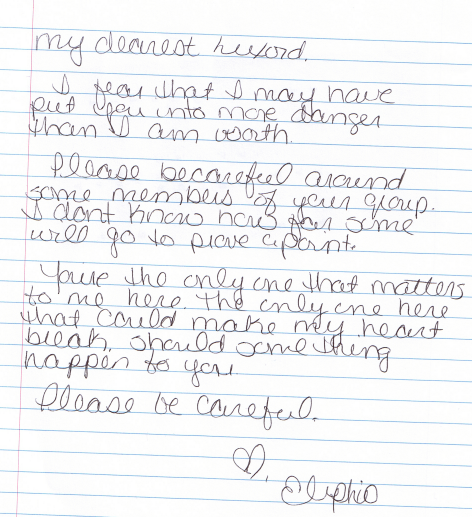 my dearest
I fear that I may have
put you into more danger
than I am worth.
Please becareful around
some members of your group.
I dont know how far some
will go to prove a point.
Youre the only one that matters
to me here. the only one here
that could make my heart
break, should something
happen to you
Please be careful.
♡,